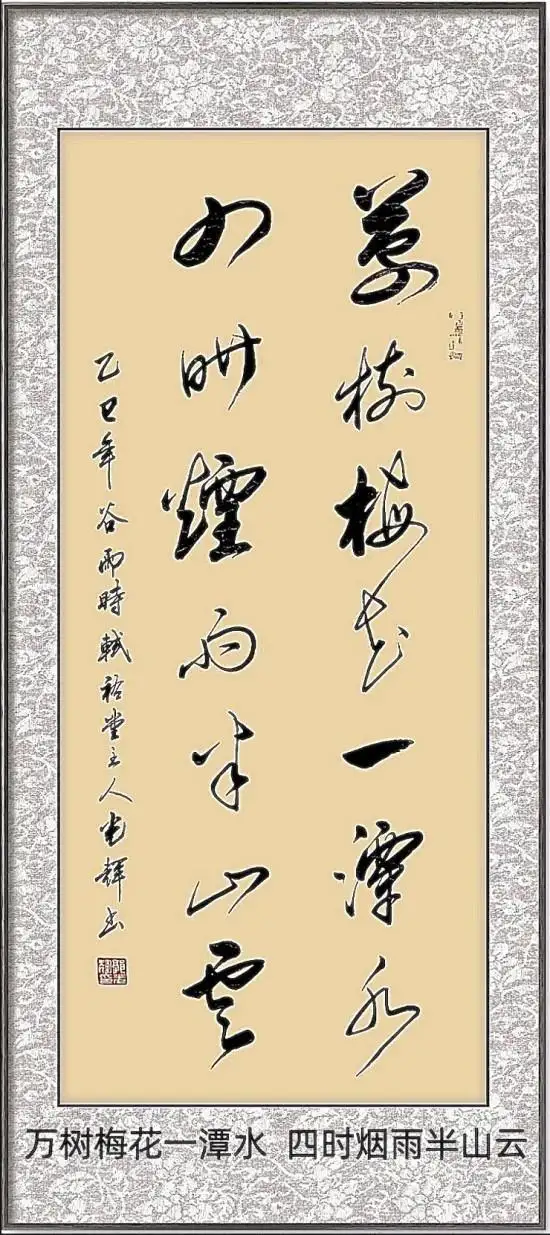 萬樹梅花一潭水
四時煙雨半山雲
乙巳年谷雨時軾裕堂主人光輝書
万树梅花一潭水 四时烟雨半山云